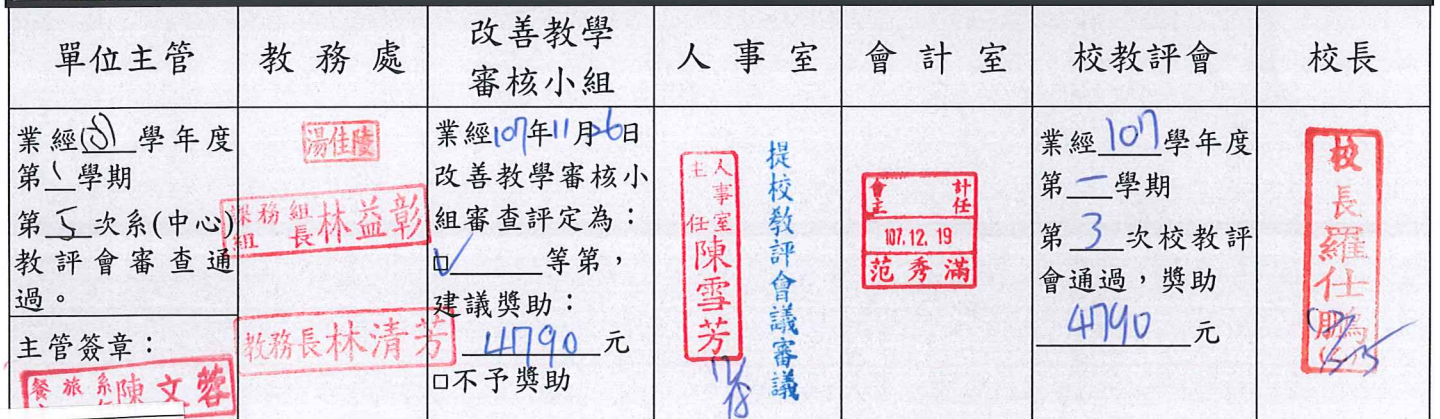 單位主管
教務處
改善教學
審核小組
人事室
會計室
校教評會
校長
業經107學年度
第1學期
第5次系(中心)
教評會審查通
過。
主管簽章：
餐旅系
陳文蓉
湯佳陵
課務組
組長
林益彰
教務長林清芳
業經107年11月26日
改善教學審核小
組審查評定為：
□等第，
建議獎助：
4790元
□不予獎助
人事室
主任
陳雪芳
提校教評會議審議
會計
主任
107.12.19
范秀滿
業經107學年度
第一學期
第3次校教評
會通過，獎助
4790元
校長羅仕鵬